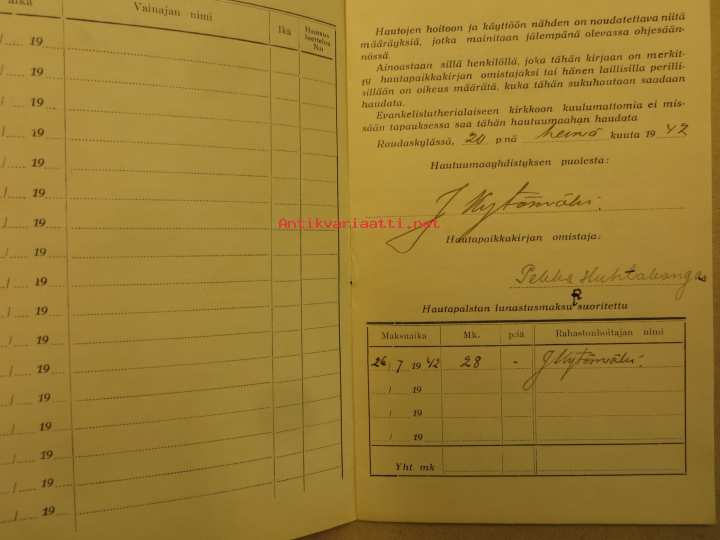 aika Vainajan nimi Ikä Hautaus luettelon N:o
/ 19
/ 19
/ 19
/ 19
/ 19
/ 19
/ 19
/ 19
/ 19
/ 19
/ 19
/ 19
/ 19
/ 19
/ 19
/ 19
/ 19
Hautojen hoitoon ja käyttöön nähden on noudatettava niitä
määräyksiä, jotka mainitaan jälempänä olevassa ohjesään-
nössä.
Ainoastaan sillä henkilöllä, joka tähän kirjaan on merkit-
ty hautapaikkakirjan omistajaksi tai hänen laillisilla perilli-
sillään on oikeus määrätä, kuka tähän sukuhautaan saadaan
haudata.
Evankelislutherialaiseen kirkkoon kuulumattomia ei mis-
sään tapauksessa saa tähän hautuumaahan haudata
Raudaskylässä, 20 p:nä heinä kuuta 19 42
Hautuumaayhdistyksen puolesta:
J Kytömäki.
Antikvariaatti.net
Hautapaikkakirjan omistaja:
Pekka Huhtakangas
Hautapalstan lunastusmaksu suoritettu
Maksuaika Mk. p:iä Rahastonhoitajan nimi
26 / 7 19 42 28 - J Kytömäki.
/ 19
/ 19
/ 19
Yht mk